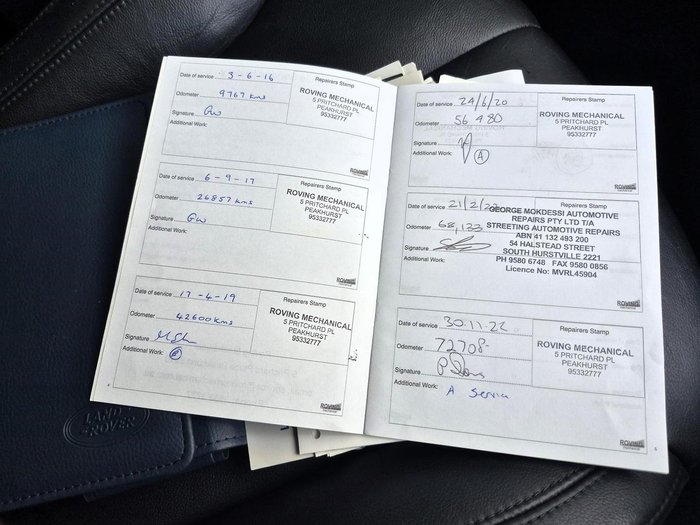 Date of service 3-6-16
Repairers Stamp
Odometer 9767 kms
ROVING MECHANICAL
5 PRITCHARD PL
PEAKHURST
95332777
Signature GW
Additional Work:
ROVING
Date of service 6-9-17
Repairers Stamp
Odometer 26857 kms
ROVING MECHANICAL
5 PRITCHARD PL
PEAKHURST
95332777
Signature GW
Additional Work:
ROVING
Date of service 17-4-19
Repairers Stamp
Odometer 42600 kms
ROVING MECHANICAL
5 PRITCHARD PL
PEAKHURST
95332777
Signature
Additional Work:
ROVING
4
Date of service 24/6/20
Repairers Stamp
Odometer 56 480
ROVING MECHANICAL
5 PRITCHARD PL
PEAKHURST
95332777
Signature
Additional Work: A
ROVING
Date of service 21/2/22
GEORGE MOKDESSI AUTOMOTIVE
REPAIRS PTY LTD T/A
Odometer 68,133
STREETING AUTOMOTIVE REPAIRS
ABN 41 132 493 200
Signature
54 HALSTEAD STREET
Additional Work:
SOUTH HURSTVILLE 2221
PH 9580 6748 FAX 9580 0856
Licence No: MVRL45904
ROVING
Date of service 30.11.22
Repairers Stamp
Odometer 72708
ROVING MECHANICAL
5 PRITCHARD PL
PEAKHURST
95332777
Signature
Additional Work: A Service
ROVING
5
LAND
ROVER